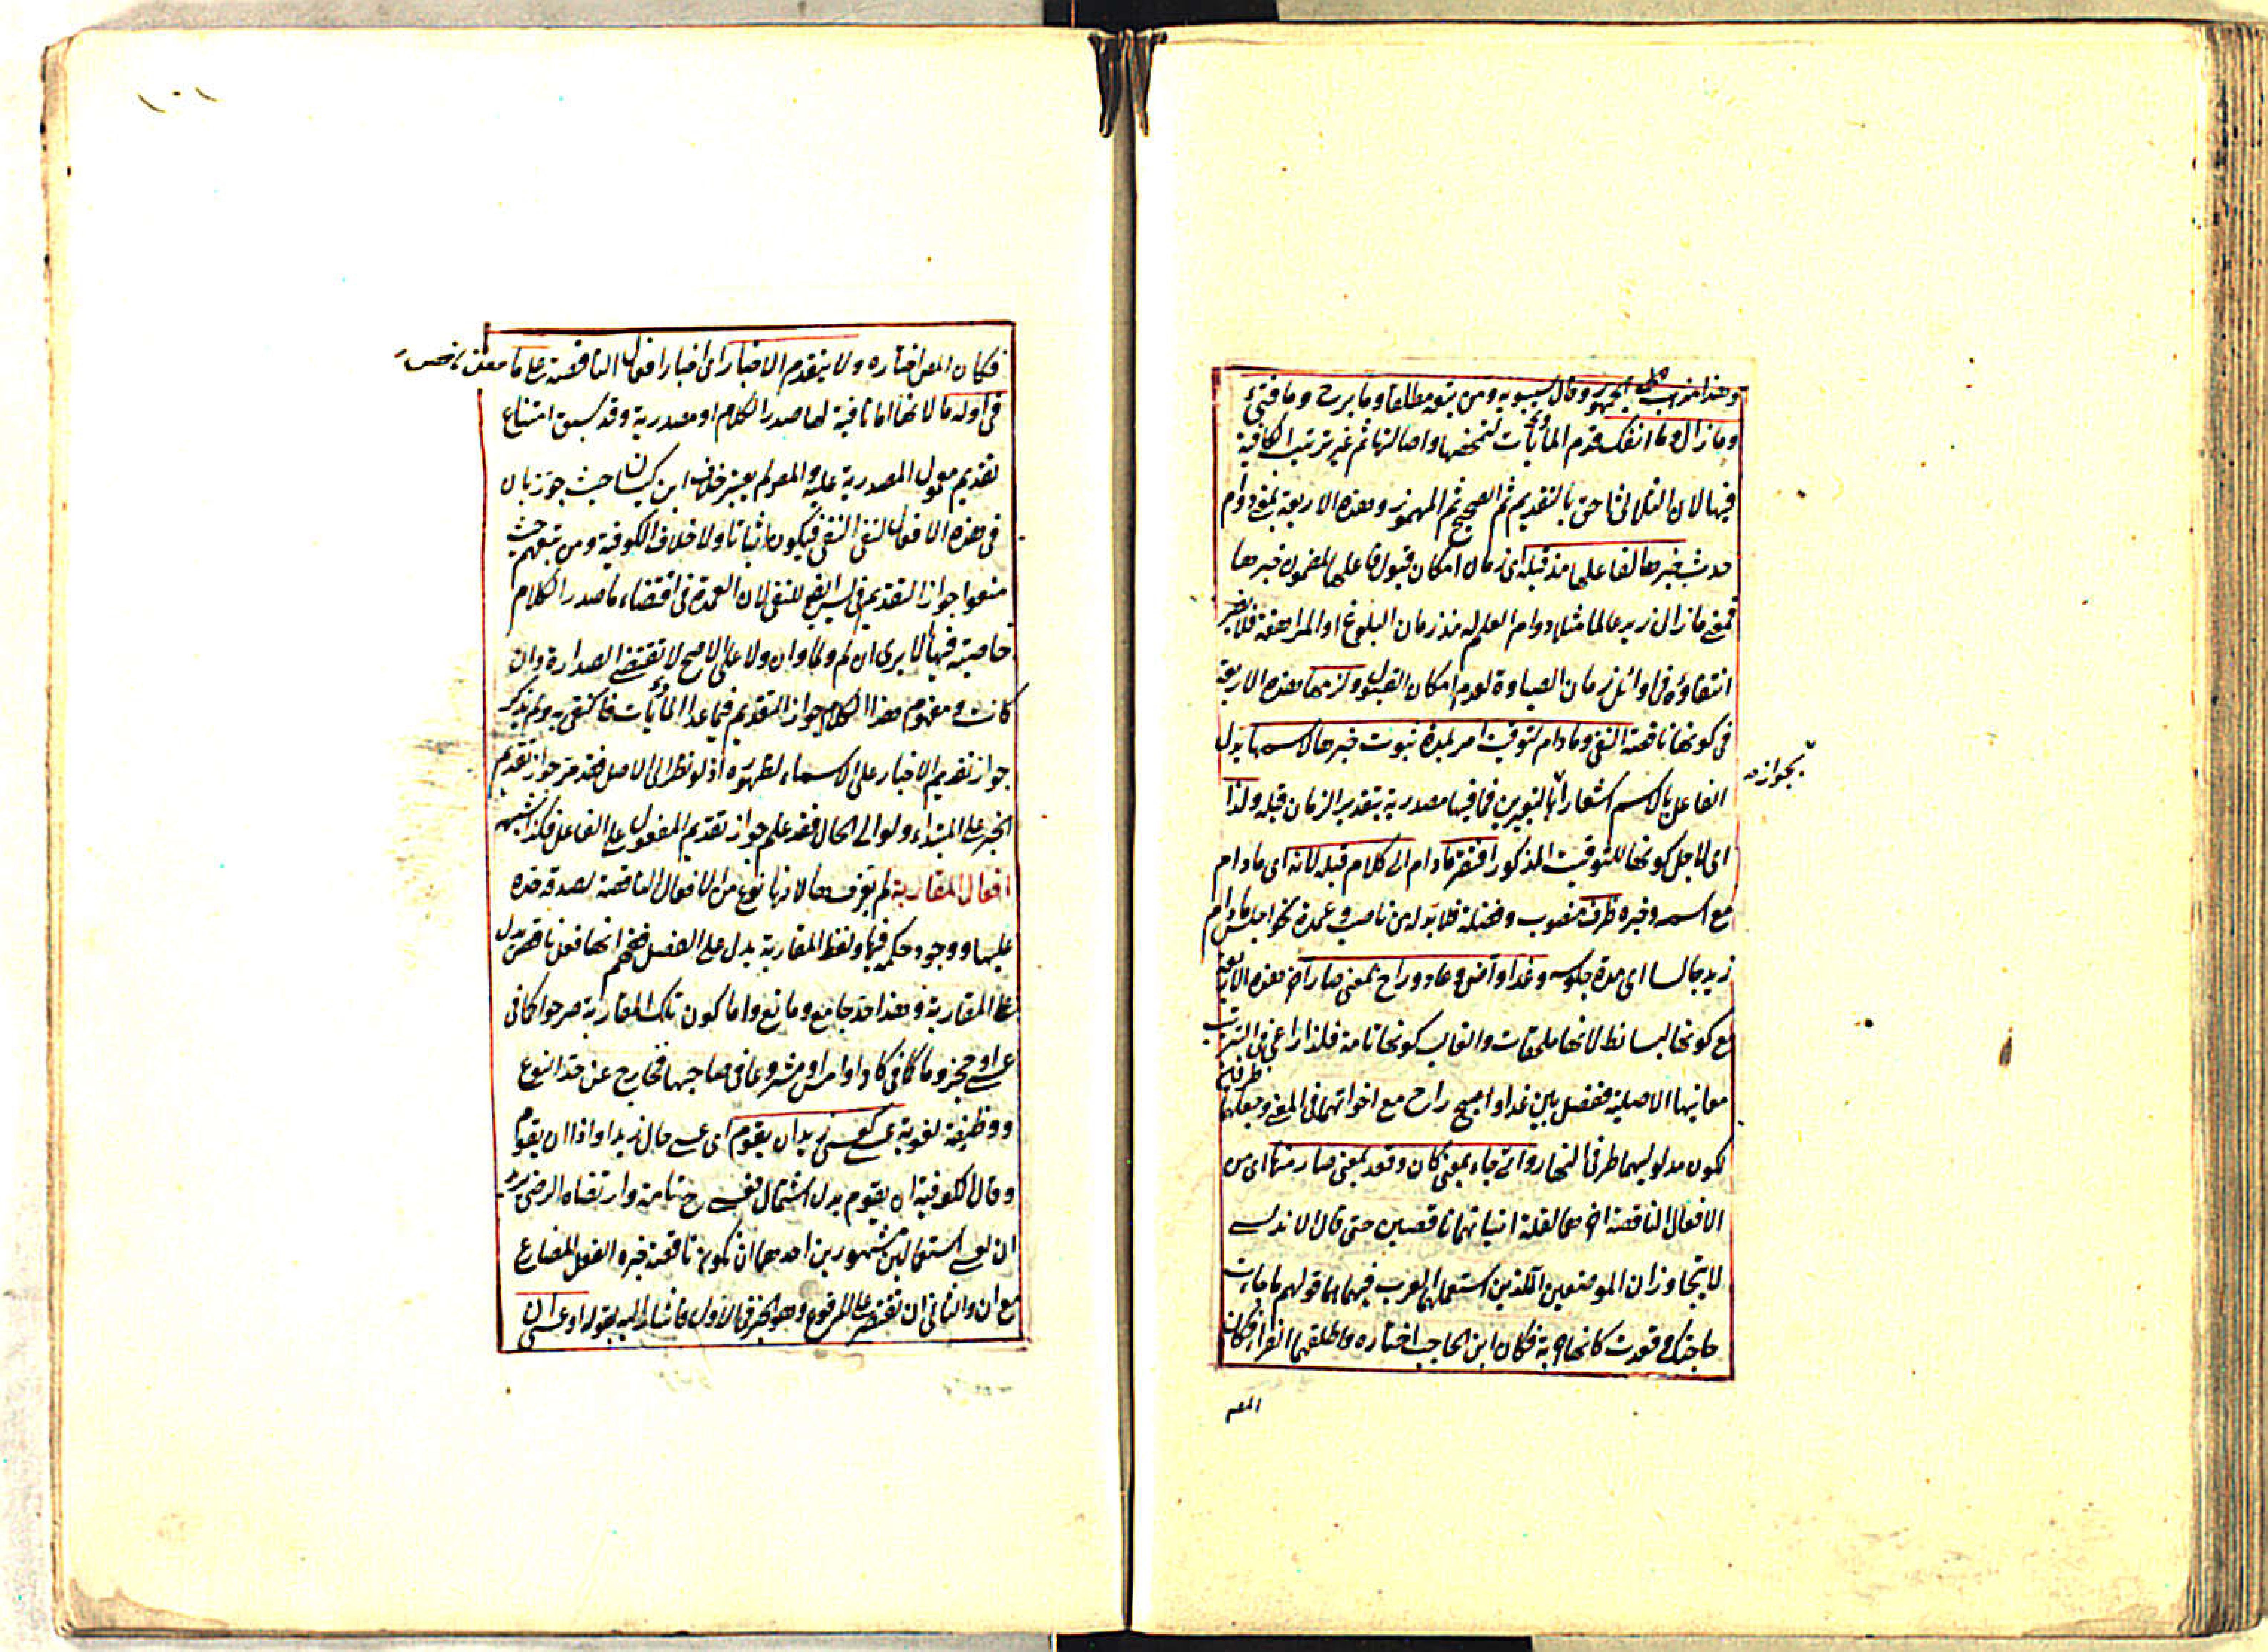 وهذا مذهب الجمهور وقال سيبويه ومن تبعه مطلقا وما برح وما فتئ
وما زال وما انفك قدم المائيات لتمحضها واصالتها ثم غير ترتيب الكافية
فيها لان الثلاثي احق بالتقديم ثم الصحيح ثم المهموز وهذه الاربعة بمعنى دوام
حدث خبرها لفاعلها مذ قبله اي زمان امكان قبول فاعلها لمضمون خبرها
فمعنى ما زال زيد عالما مثلا دوام العلم له منذ زمان البلوغ او المراهقة فلا يضر
انتفاؤه في اوائل زمان الصباوة لعدم امكان القبول ولزمها هذه الاربعة
في كونها ناقصة النفي وما دام لتوقيت امر بمدة ثبوت خبرها لاسمها بدل
الفاعل بالاسم اشعارا بالتعبيرين فما فيها مصدرية بتقدير الزمان قبله ولذا
بجوازه
اي لاجل كونها للتوقيت المذكور افتقر ما دام الى كلام قبله لانه اي ما دام
مع اسمه وخبره ظرف منصوب وفضلة فلا بد له من ناصب وعمدة نحو اجلس ما دام
زيد جالسا اي مدة جلوسه وغدا وآض وعاد وراح بمعنى صار اخر هذه الاربعة
مع كونها بسائط لانها ملحقات والغالب كونها تامة فلذا راعى في الترتيب
معانيها الاصلية ففصل بين غدا و راح مع اخواتهما في المعنى وجعلهما طرفين
لكون مدلوليهما طرفي النهار واتى جاء بمعنى كان وقعد بمعنى صار منها اي من
الافعال الناقصة اخرهما لقلة اتيانهما ناقصين حتى قال الاندلسي
لا يتجاوزان الموضعين اللذين استعملهما العرب فيهما قولهم ما جاءت
حاجتك وقعدت كانها حربة فكان ابن الحاجب اختاره واطلقهما الفراء فكان
المصه
١٠١
فكان المص اختاره ولا يتقدم الاخبار اي اخبار افعال الناقصة على ما
في اوله ما لانها اما نافية لها صدر الكلام او مصدرية وقد سبق امتناع
تقديم معمول المصدرية عليه والمص لم يعتبر خلاف ابن كيسان حيث جوز بان
في هذه الافعال لنفي النفي فيكون اثباتا ولا خلاف الكوفية ومن تبعهم حيث
منعوا جواز التقديم في ليس للنفي لان العمدة في اقتضاء ما صدر الكلام
خاصيته فيها الا يرى ان لم ولما ولن ولا على الاصح لا تقتضي الصدارة وان
كانت ومفهوم هذا الكلام جواز التقديم فيما عدا المائيات فاكتفى به ولم يذكر
جواز تقديم الاخبار على الاسماء لظهوره اذ لو نظر الى الاصل فقد مر جواز تقديم
الخبر على المبتداء ولو الى الحال فقد علم جواز تقديم المفعول على الفاعل فكذا شبههم
افعال المقاربة لم يعرفها لانها نوع من الافعال الناقصة لصدقه حده
عليها ووجود حكمه فيها ولفظ المقاربة يدل على الفصل فهم انها فعل ناقص يدل
على المقاربة وهذا حد جامع ومانع واما كون تلك المقاربة مرجوا كما في
عسى او مجزوما كما في كاد او مشروعا في صاحبها فخارج عن حد النوع
ووظيفة لغوية عسى كعسى زيد ان يقوم اي عسى حال زيد او اذا ان يقوم
وقال الكوفية ان يقوم بدل اشتمال فعسى ح تامة وارتضاه الرضي
ان لعسى استعمالين مشهورين احدهما ان يكون ناقصة خبره الفعل المضارع
مع ان والثاني ان تقتصر على المرفوع وهو الخبر في الاول فاشار اليه بقوله او عسى ان